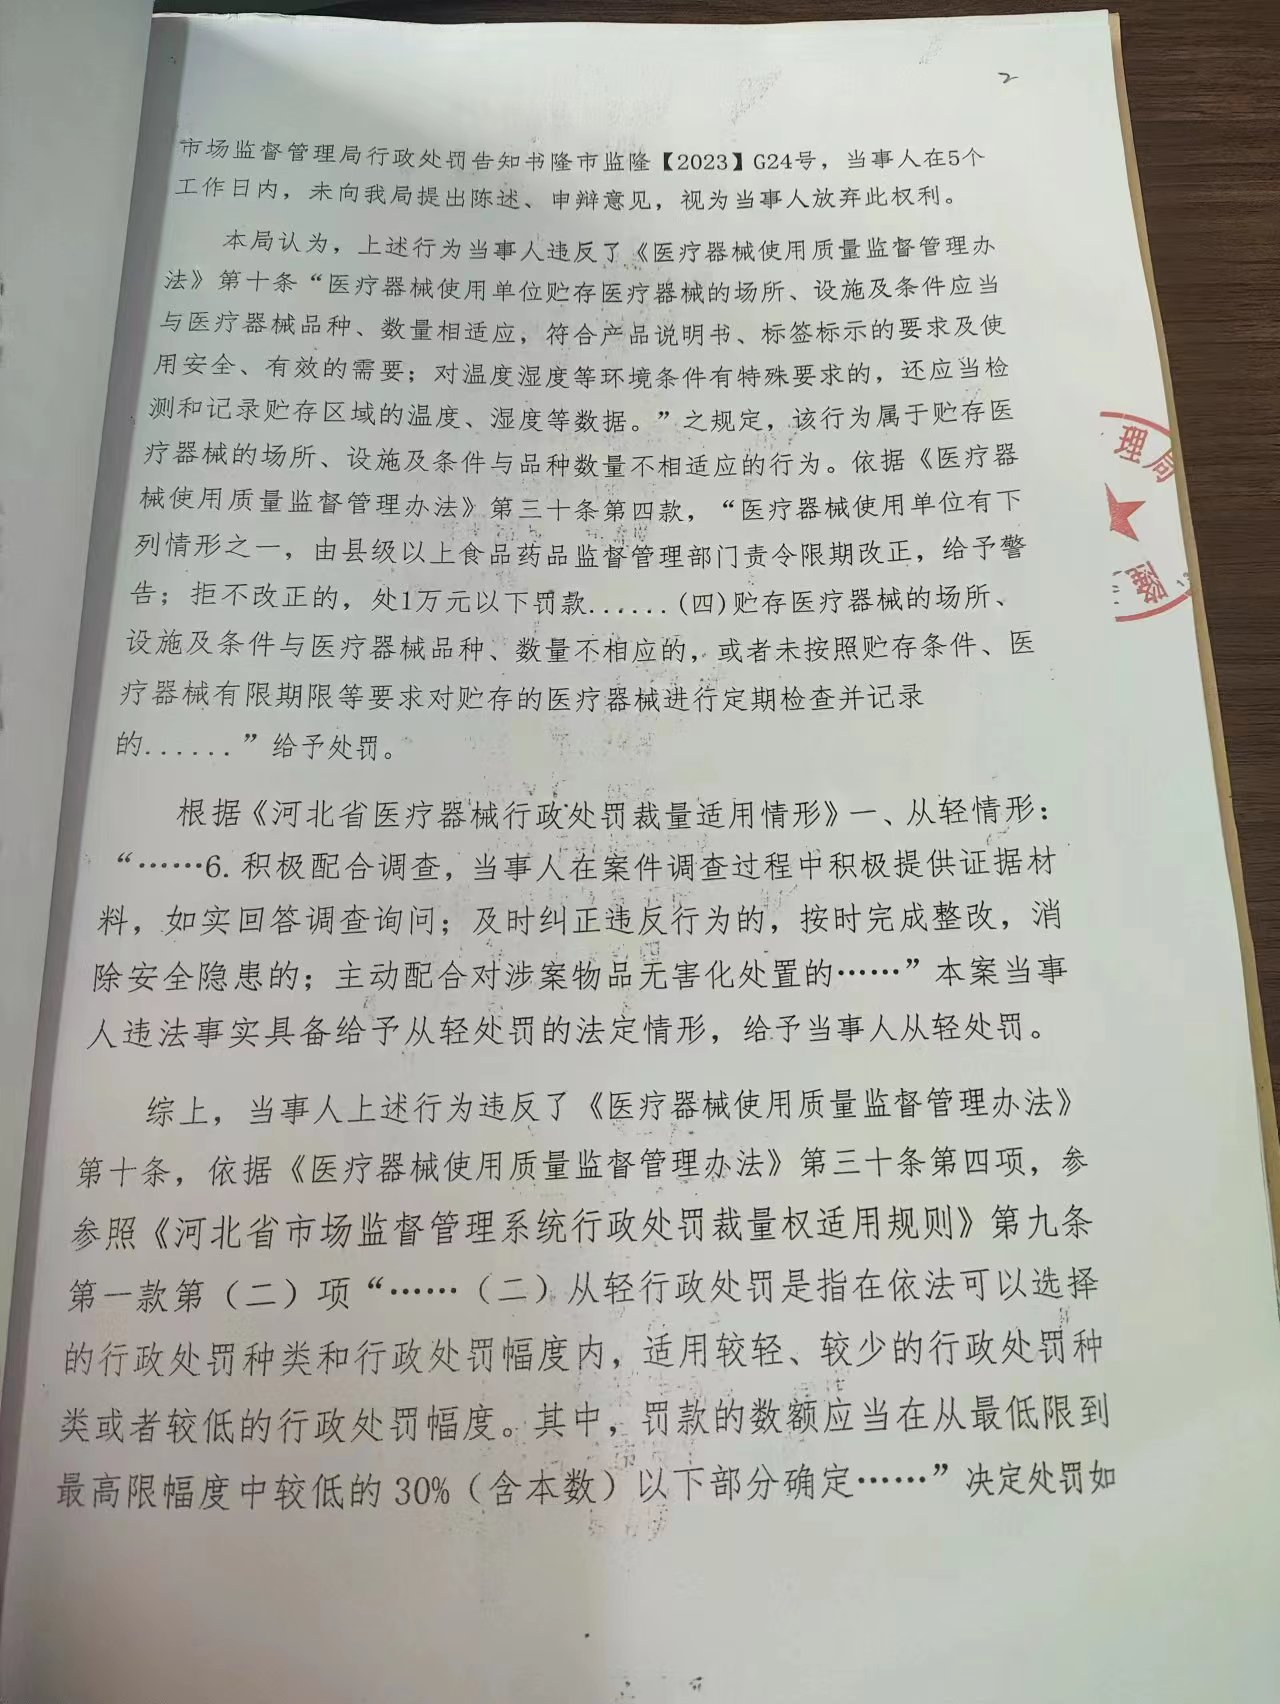 2
市场监督管理局行政处罚告知书隆市监隆【2023】G24号，当事人在5个
工作日内，未向我局提出陈述、申辩意见，视为当事人放弃此权利。
本局认为，上述行为当事人违反了《医疗器械使用质量监督管理办
法》第十条“医疗器械使用单位贮存医疗器械的场所、设施及条件应当
与医疗器械品种、数量相适应，符合产品说明书、标签标示的要求及使
用安全、有效的需要；对温度湿度等环境条件有特殊要求的，还应当检
测和记录贮存区域的温度、湿度等数据。”之规定，该行为属于贮存医
疗器械的场所、设施及条件与品种数量不相适应的行为。依据《医疗器
械使用质量监督管理办法》第三十条第四款，“医疗器械使用单位有下
列情形之一，由县级以上食品药品监督管理部门责令限期改正，给予警
告；拒不改正的，处1万元以下罚款......(四)贮存医疗器械的场所、
设施及条件与医疗器械品种、数量不相应的，或者未按照贮存条件、医
疗器械有限期限等要求对贮存的医疗器械进行定期检查并记录
的......”给予处罚。
根据《河北省医疗器械行政处罚裁量适用情形》一、从轻情形：
“……6.积极配合调查，当事人在案件调查过程中积极提供证据材
料，如实回答调查询问；及时纠正违反行为的，按时完成整改，消
除安全隐患的；主动配合对涉案物品无害化处置的……”本案当事
人违法事实具备给予从轻处罚的法定情形，给予当事人从轻处罚。
综上，当事人上述行为违反了《医疗器械使用质量监督管理办法》
第十条，依据《医疗器械使用质量监督管理办法》第三十条第四项，参
参照《河北省市场监督管理系统行政处罚裁量权适用规则》第九条
第一款第（二）项“……（二）从轻行政处罚是指在依法可以选择
的行政处罚种类和行政处罚幅度内，适用较轻、较少的行政处罚种
类或者较低的行政处罚幅度。其中，罚款的数额应当在从最低限到
最高限幅度中较低的 30%（含本数）以下部分确定……”决定处罚如
理局
隆